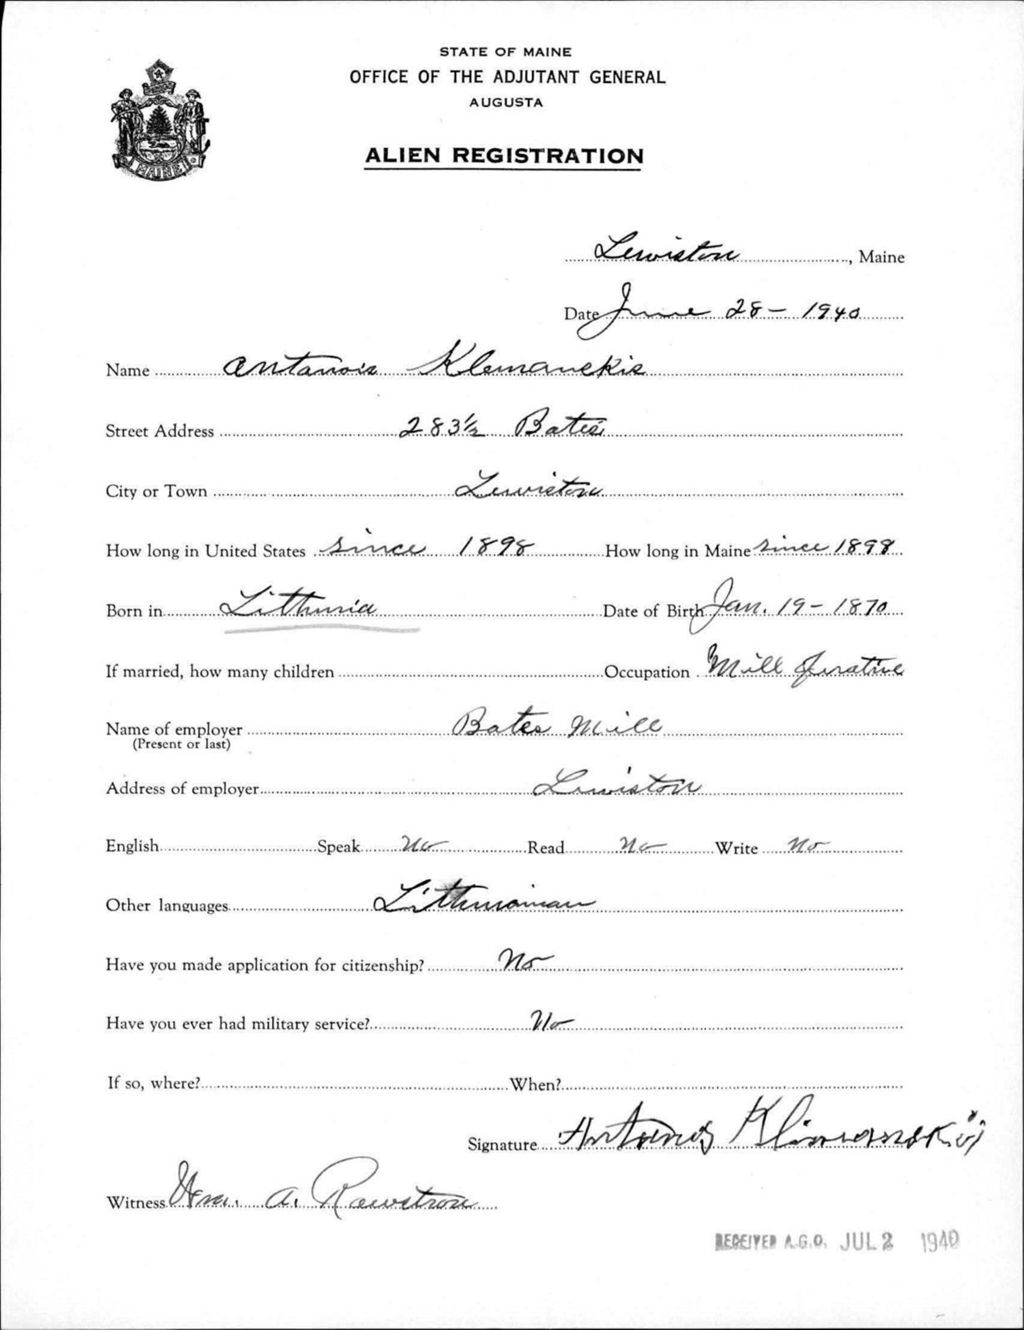 STATE OF MAINE
OFFICE OF THE ADJUTANT GENERAL
AUGUSTA
ALIEN REGISTRATION
MAINE
Lewiston, Maine
Date June 28 - 1940
Name Antanois Klemanskis
Street Address 283½ Bates
City or Town Lewiston
How long in United States since 1898 How long in Maine since 1898
Born in Lithunia Date of Birth Jan. 19 - 1870
If married, how many children Occupation Mill Operative
Name of employer Bates Mill
(Present or last)
Address of employer Lewiston
English Speak No Read No Write No
Other languages Lithunainan
Have you made application for citizenship? No
Have you ever had military service? No
If so, where? When?
Signature Antanas
Witness Wm. A. Rawstron
RECEIVED A.G.O. JUL 2 1940